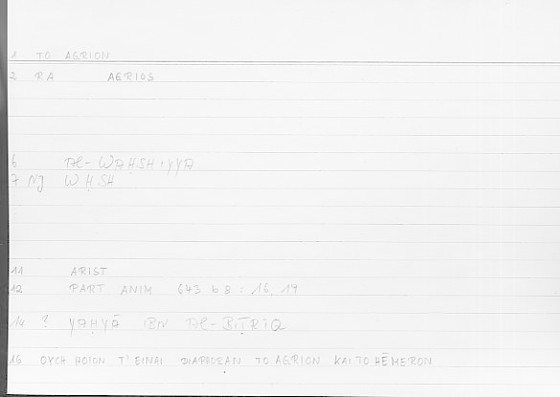 1 TO AGRION
2 RA AGRIOS
6 AL-WAḤSHIYYA
7 NJ WḤSH
11 ARIST
12 PART ANIM 643 b 8 : 16, 19
14 ? YAḤYĀ BN AL-BIṬRĪQ
16 OYCH HOION T' EINAI DIAPHORAN TO AGRION KAI TO HĒMERON